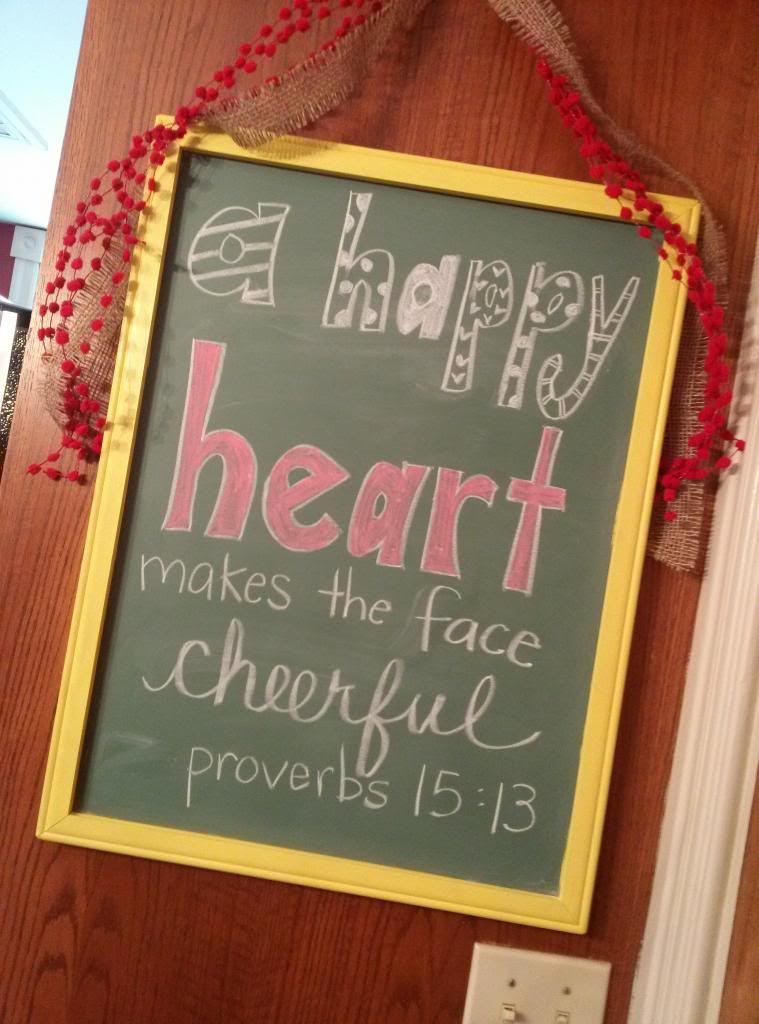 a happy
heart
makes the face
cheerful
proverbs 15:13